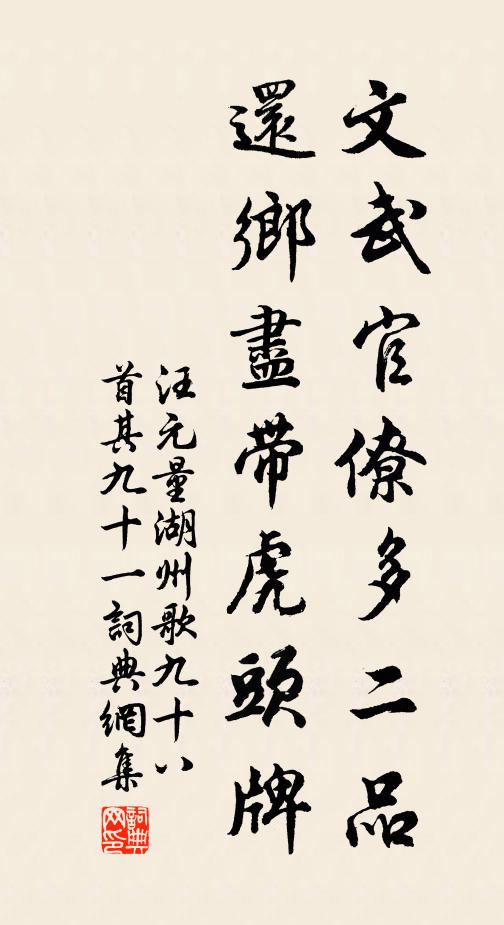 文武官僚多二品
還鄉盡带虎頭牌
汪元量湖州歌九十八
首其九十一詞典網集
詞典网印